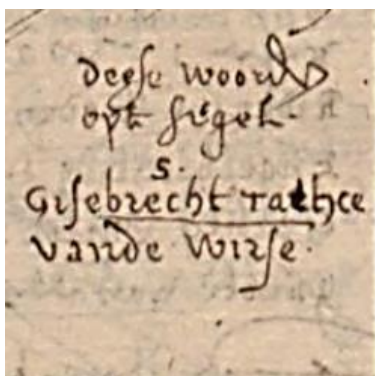 deese woorden
opt segel.
S.
Gisebrecht taethce
vande Wirse.